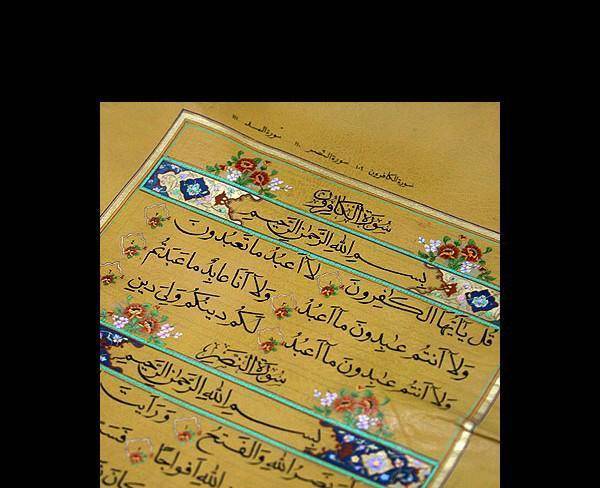 سورة الكافرون ١٠٩ سورة النصر ١١٠ سورة المسد ١١١
سُورَةُ الكَافِرُون
بِسْمِ اللهِ الرَّحْمٰنِ الرَّحِيمِ
قُلْ يٰٓأَيُّهَا الْكٰفِرُونَ لَآ أَعْبُدُ مَا تَعْبُدُونَ
وَلَآ أَنْتُمْ عٰبِدُونَ مَآ أَعْبُدُ وَلَآ أَنَا۠ عَابِدٌ مَا عَبَدْتُمْ
وَلَآ أَنْتُمْ عٰبِدُونَ مَآ أَعْبُدُ لَكُمْ دِينُكُمْ وَلِيَ دِينِ
سُورَةُ النَّصْر
بِسْمِ اللهِ الرَّحْمٰنِ الرَّحِيمِ
نَصْرُ اللهِ وَالْفَتْحُ وَرَأَيْتَ
اللهِ أَفْوَاجًا